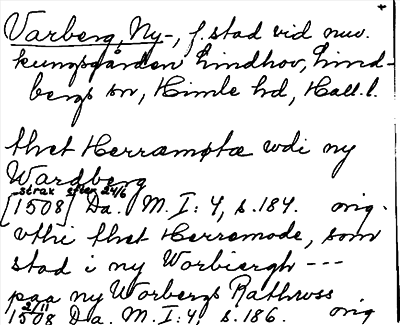 Varberg, Ny-, f. stad vid nuv.
kungsgården Lindhov, Lind-
bergs sn, Himle hd, Hall. l.
thet Herræmøtæ wdi ny
Wardberg
strax efter 24/6
[1508] Da. M. I: 4, s. 184. orig.
vthi thet Herremode, som
stad i ny Worbiergh ---
paa ny Worbergs Rathwss
2/11
1508 Da. M. I: 4, s. 186. orig